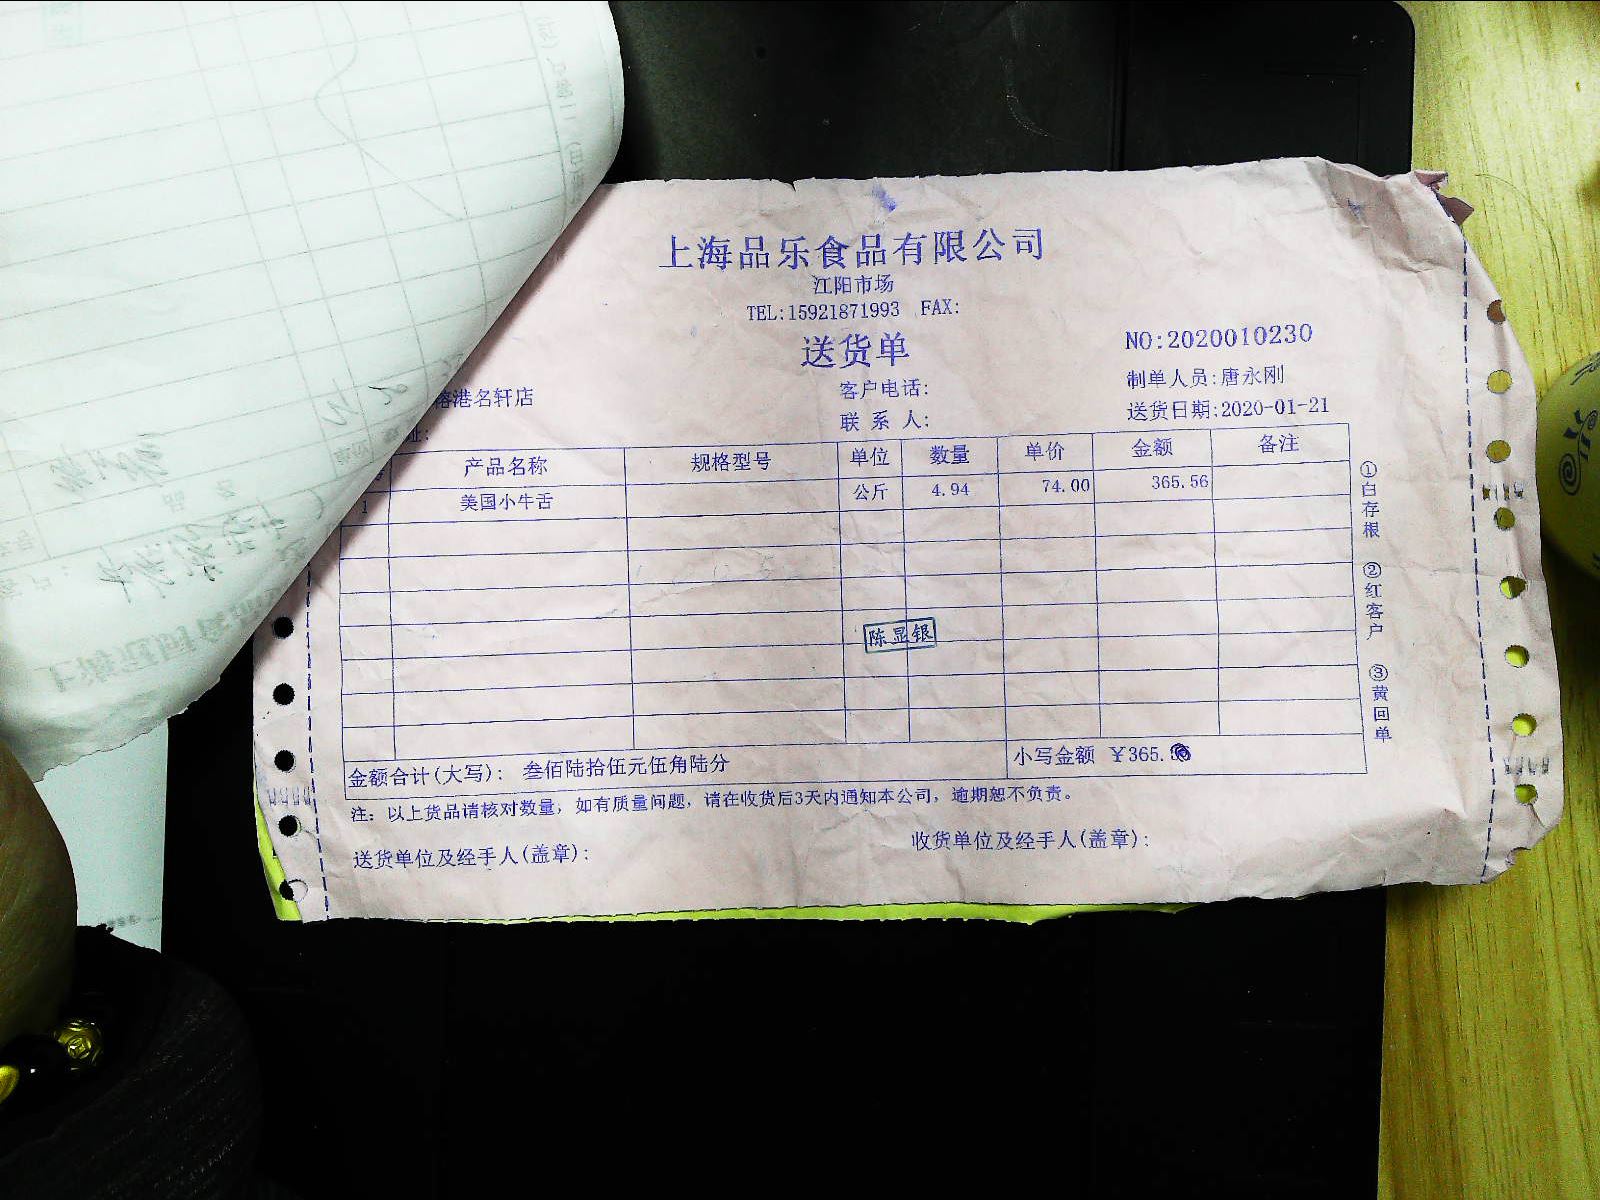 上海品乐食品有限公司
江阳市场
TEL:15921871993 FAX:
送货单
NO:2020010230
港名轩店
客户电话:
制单人员:唐永刚
址:
联系人:
送货日期:2020-01-21
产品名称 规格型号 单位 数量 单价 金额 备注
1 美国小牛舌 公斤 4.94 74.00 365.56
陈显银
金额合计(大写): 叁佰陆拾伍元伍角陆分 小写金额 ¥365.
注: 以上货品请核对数量, 如有质量问题, 请在收货后3天内通知本公司, 逾期恕不负责。
送货单位及经手人(盖章):
收货单位及经手人(盖章):
①白存根 ②红客户 ③黄回单